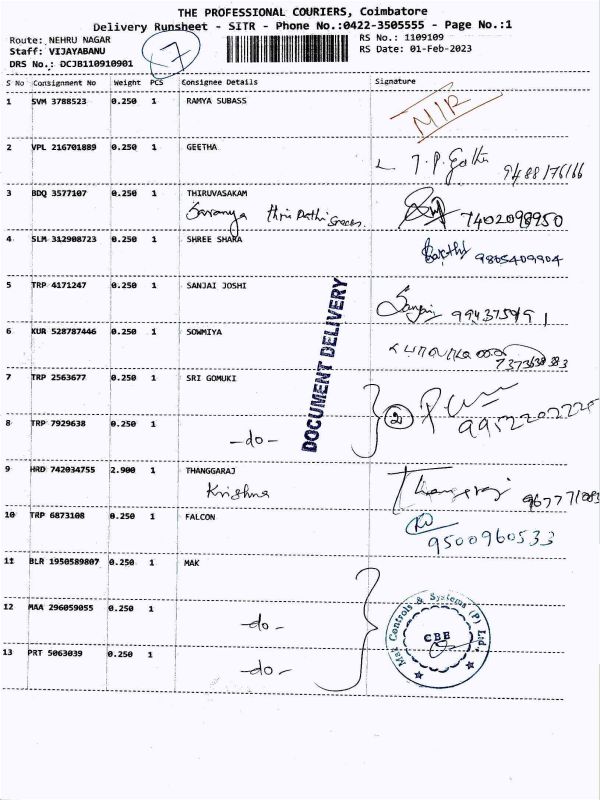 THE PROFESSIONAL COURIERS, Coimbatore
Delivery Runsheet - SITR - Phone No.:0422-3505555 - Page No.:1
Route: NEHRU NAGAR
RS No.: 1109109
Staff: VIJAYABANU
RS Date: 01-Feb-2023
DRS No.: DCJB110910901
7
S No Consignment No Weight PCS Consignee Details Signature
1 SVM 3788523 0.250 1 RAMYA SUBASS
2 VPL 216701889 0.250 1 GEETHA
T.P. Geetha 9488176166
3 BDQ 3577107 0.250 1 THIRUVASAKAM
Saranya
7402098950
4 SLM 312908723 0.250 1 SHREE SHARA
9865409904
5 TRP 4171247 0.250 1 SANJAI JOSHI
6 KUR 528787446 0.250 1 SOWMIYA
7 TRP 2563677 0.250 1 SRI GOMUKI
2
8 TRP 7929638 0.250 1
-do-
DOCUMENT DELIVERY
9 HRD 742034755 2.900 1 THANGGARAJ
Krishna
Thangaraj
10 TRP 6873108 0.250 1 FALCON
9500960533
11 BLR 1950589807 0.250 1 MAK
12 MAA 296059055 0.250 1
-do-
13 PRT 5063039 0.250 1
-do-
Mak Controls & Systems (P) Ltd.
CBE